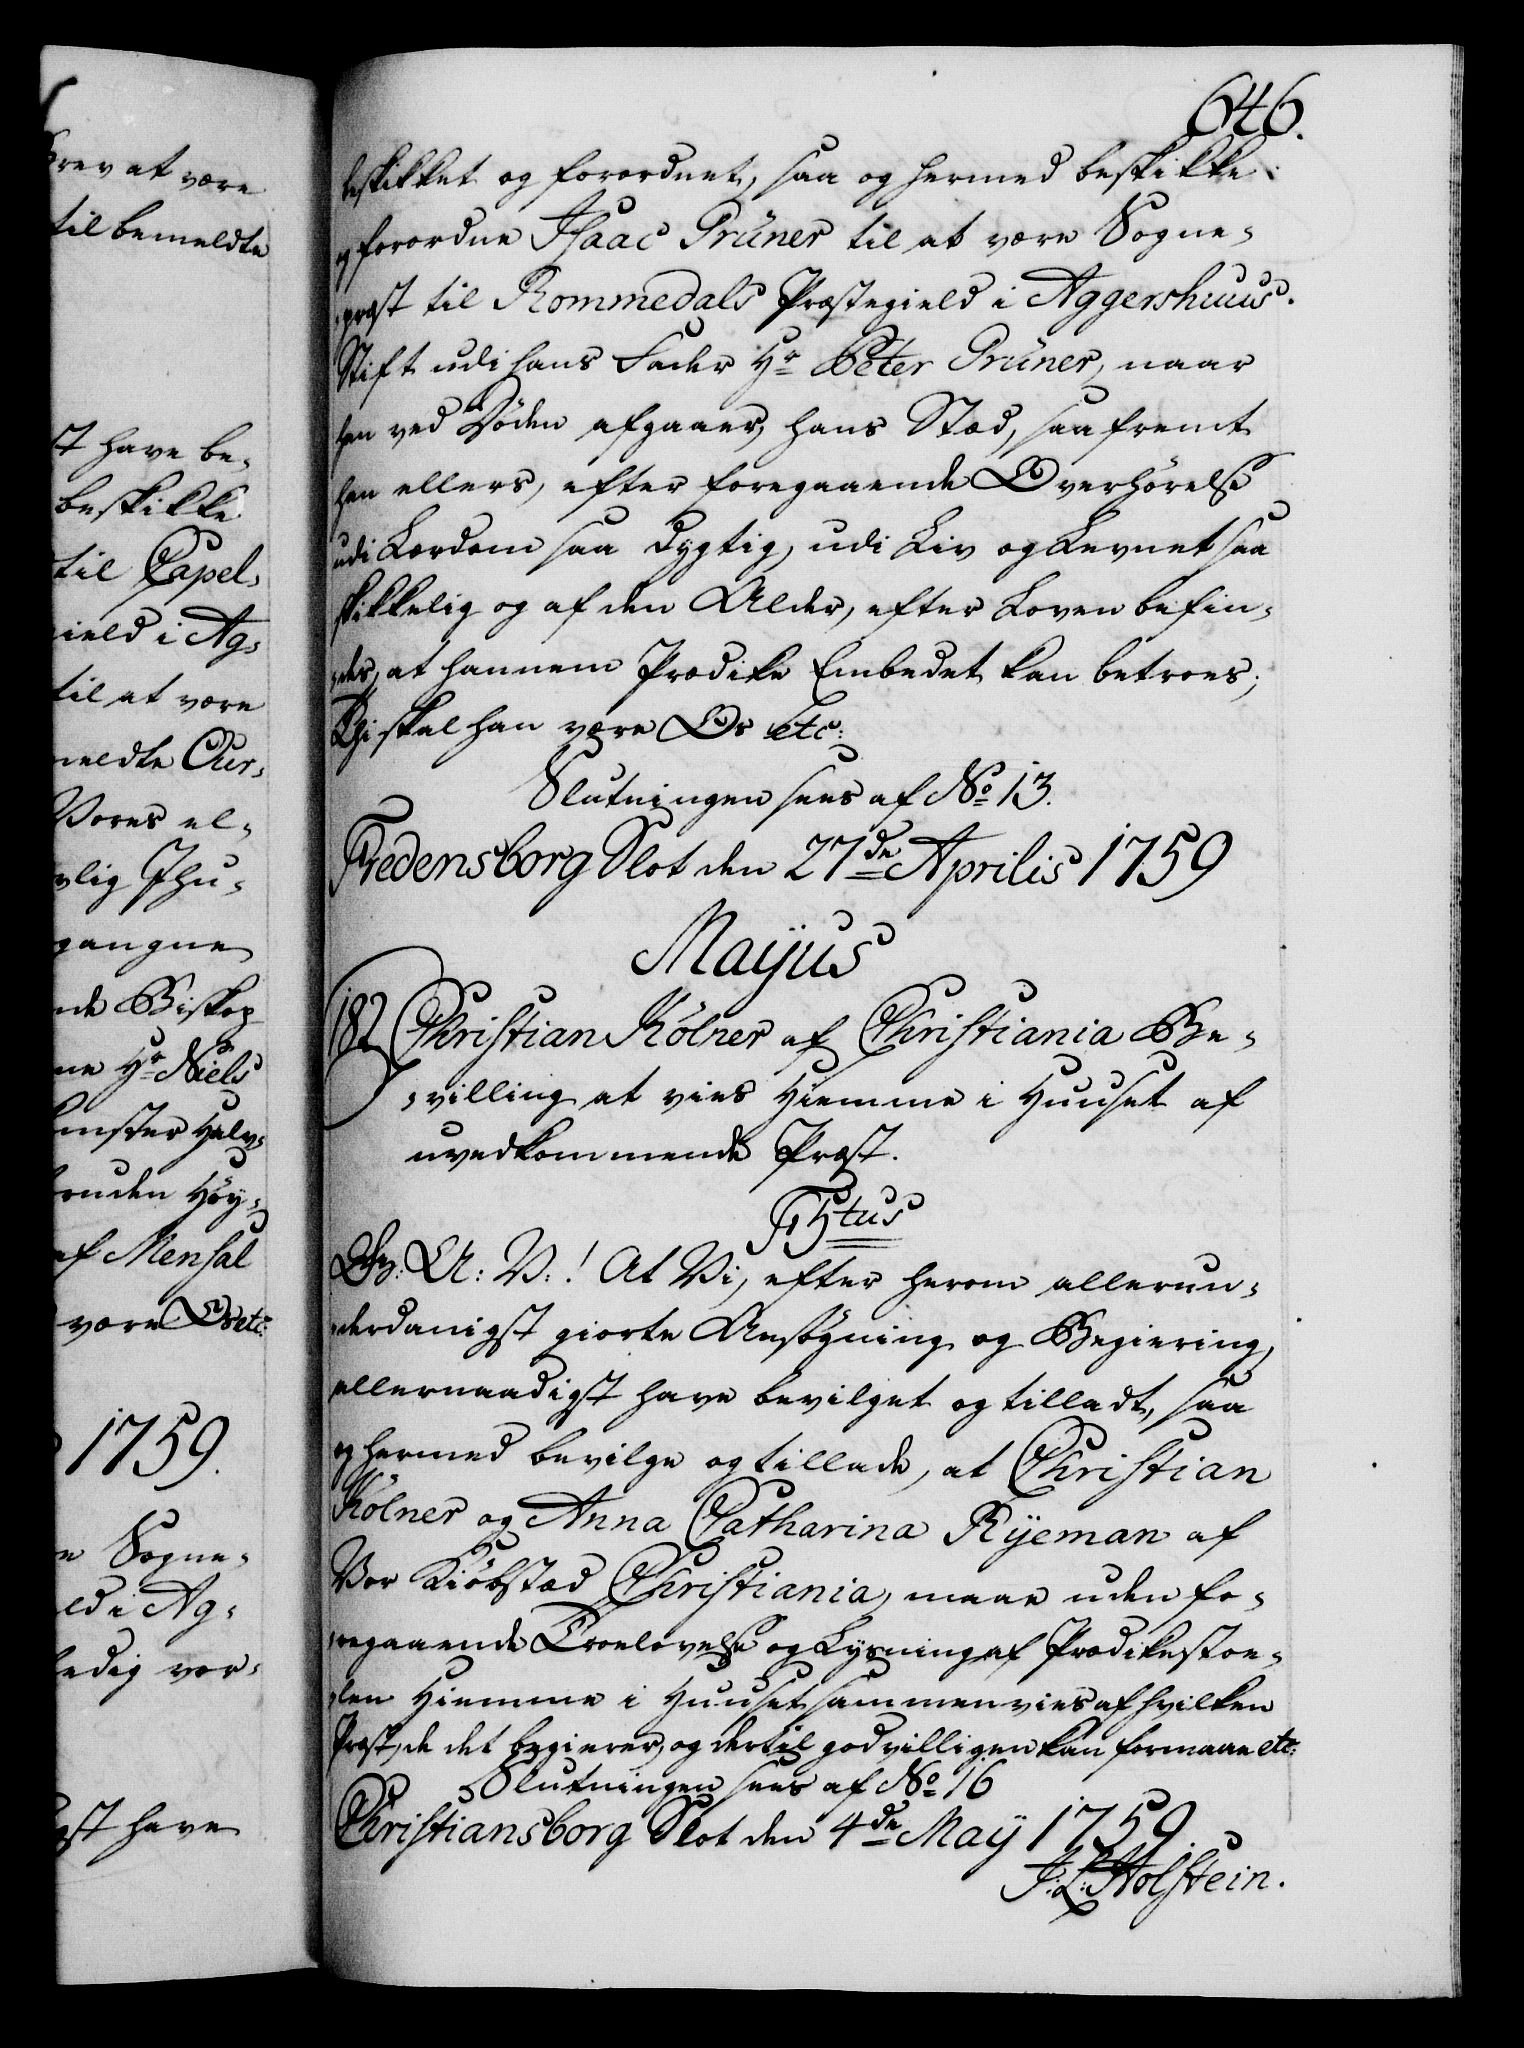 646.
beskikket og forordnet, saa og hermed beskikke
og forordne Isaac Grüner til at være Sogne-
præst til Rommedals Præstegield i Aggershuus
Stift udi hans Fader Hr Peter Grüner, naar
han ved Döden afgaaer, hans Stæd, saafremt
han ellers, efter foregaaende Overhörelse
udi Lærdom saa dygtig, udi Liv og Levnet saa
skikkelig og af den Alder, efter Loven befin-
des, at hannem Prædike Embedet kan betroes;
Thi skal han være Os etc:
Slutningen sees af No 13.
Fredensborg Slot den 27de Aprilis 1759
Mayus
182 Christian Kölner af Christiania Be-
villing at vies Hiemme i Huuset af
uvedkommende Præst.
F 5tus
Gr: A: V:! At Vi, efter herom allerun-
derdanigst giorte Ansögning og Begiering,
allernaadigst have bevilget og tilladt, saa
og hermed bevilge og tillade, at Christian
Kölner og Anna Catharina Ryeman af
Vor Kiöbstæd Christiania, maae uden fo-
regaaende Troelovelse og Lysning af Prædikestoe-
len Hiemme i Huuset sammenvies af hvilken
Præst, de det begierer, og dertil godvilligen kan formaae etc:
Slutningen sees af No 16
Christiansborg Slot den 4de May 1759.
J: L: Holstein.
Brev at være
til bemeldte
st have be-
beskikke
til Capel-
gield i Ag-
til at være
meldte Cur-
Vores al-
vlig Ihu-
gangne
nde Biskop
ne Hr Niels
Halv-
Höy-
af Mensal
være Os etc:
1759.
e Sogne-
eld i Ag-
ledig vor-
gst have